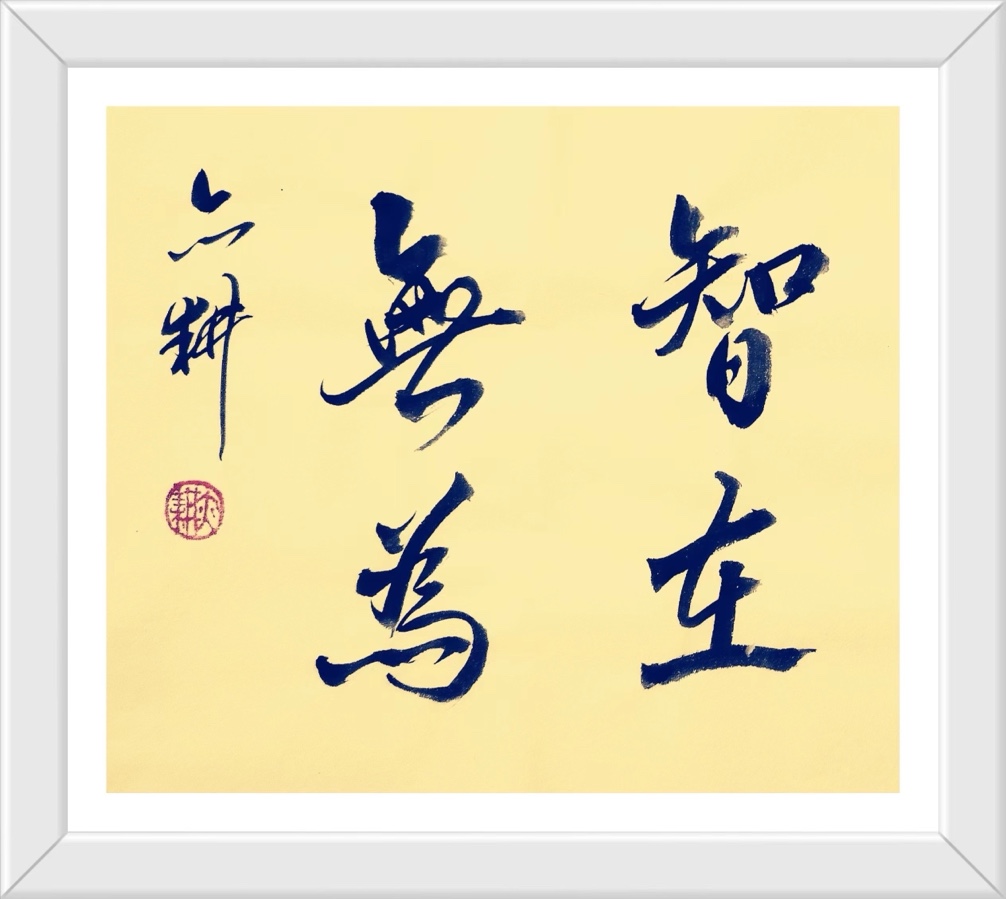 智在
無為
六耕